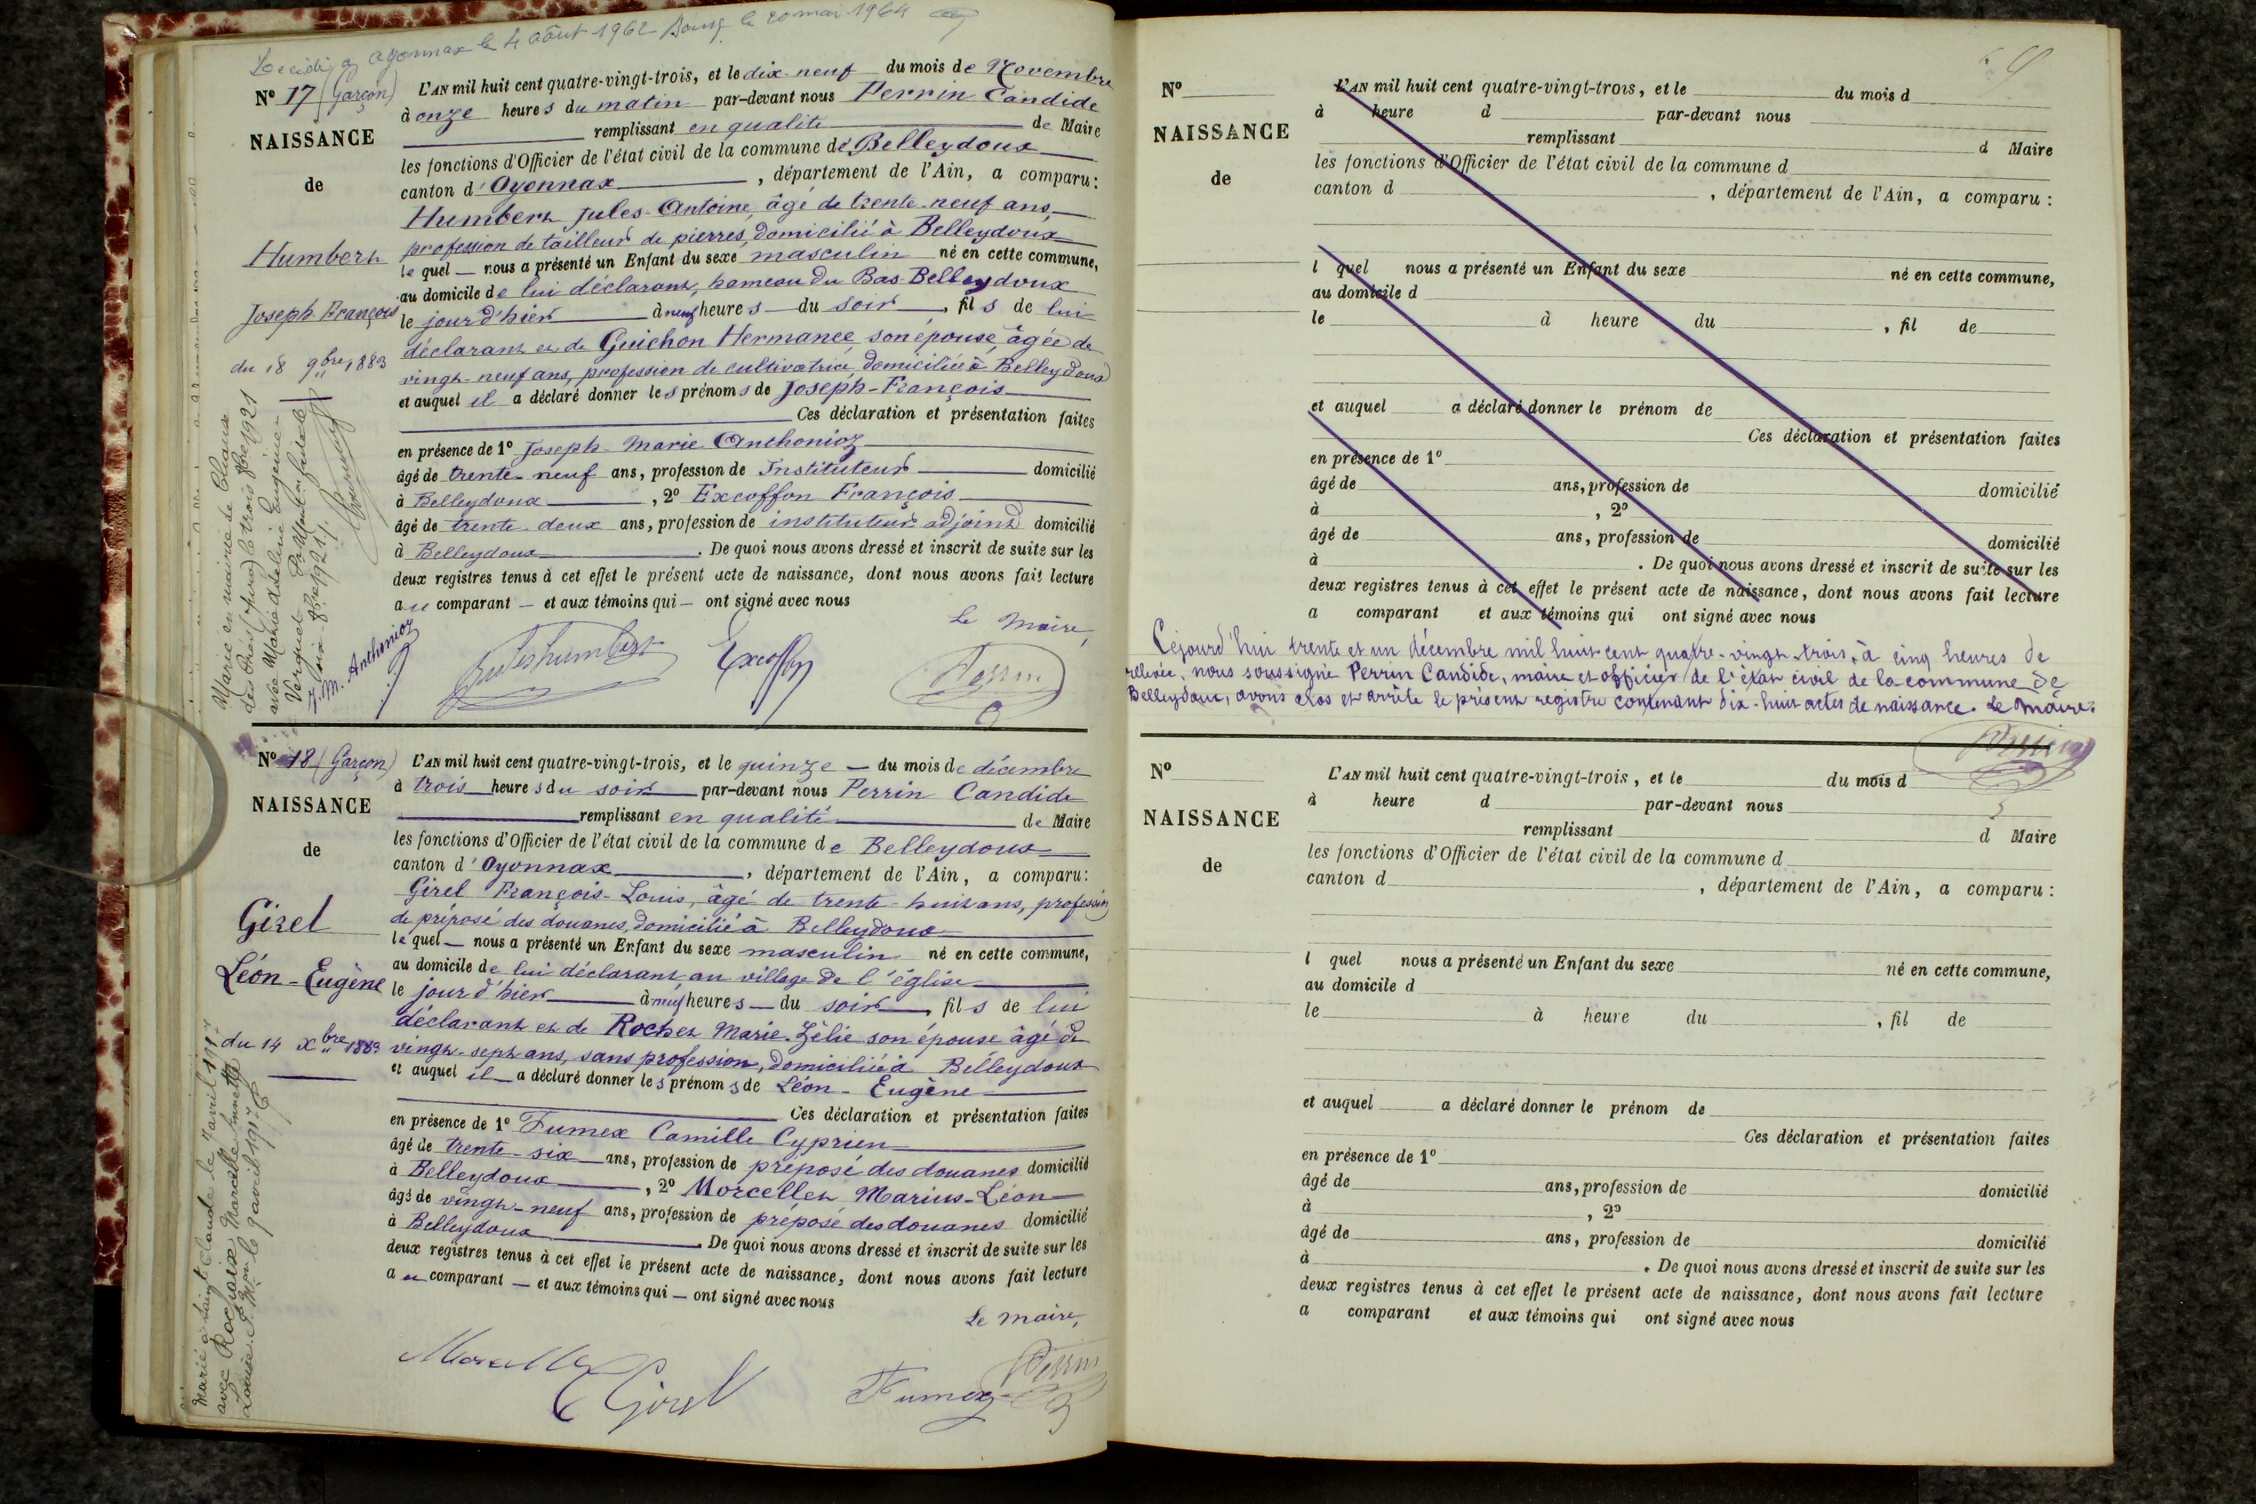 Décédé à Oyonnax le 4 août 1962 Bourg le 20 mai 1964
N° 17 (Garçon)
NAISSANCE
de
Humbert
Joseph François
du 18 9bre 1883
L'AN mil huit cent quatre-vingt-trois, et le dix-neuf du mois de Novembre
à onze heures du matin par-devant nous Perrin Candide
remplissant en qualité de Maire
les fonctions d'Officier de l'état civil de la commune de Belleydoux
canton d'Oyonnax, département de l'Ain, a comparu:
Humbert Jules-Antoine, âgé de trente-neuf ans,
profession de tailleur de pierres, domicilié à Belleydoux
lequel nous a présenté un Enfant du sexe masculin né en cette commune,
au domicile de lui déclarant, hameau du Bas-Belleydoux
le jour d'hier à neuf heures du soir, fils de lui
déclarant et de Guichon Hermance, son épouse, âgée de
vingt-neuf ans, profession de cultivatrice, domiciliée à Belleydoux
et auquel il a déclaré donner les prénoms de Joseph-François
Ces déclaration et présentation faites
en présence de 1° Joseph-Marie Anthonioz
âgé de trente-neuf ans, profession de Instituteur domicilié
à Belleydoux, 2° Excoffon François
âgé de trente-deux ans, profession de instituteur adjoint domicilié
à Belleydoux. De quoi nous avons dressé et inscrit de suite sur les
deux registres tenus à cet effet le présent acte de naissance, dont nous avons fait lecture
au comparant — et aux témoins qui — ont signé avec nous
Le Maire,
J. M. Anthonioz
Jules humbert
Excoffon
Perrin
Marié en mairie de
le trois 1921
avec Marie Adeline Eugénie
N° 18 (Garçon)
NAISSANCE
de
Girel
Léon-Eugène
du 14 Xbre 1883
L'AN mil huit cent quatre-vingt-trois, et le quinze — du mois de décembre
à trois heures du soir par-devant nous Perrin Candide
remplissant en qualité de Maire
les fonctions d'Officier de l'état civil de la commune de Belleydoux
canton d'Oyonnax, département de l'Ain, a comparu:
Girel François-Louis, âgé de trente-huit ans, profession
de préposé des douanes, domicilié à Belleydoux
lequel — nous a présenté un Enfant du sexe masculin né en cette commune,
au domicile de lui déclarant au village de l'église
le jour d'hier à neuf heures — du soir, fils de lui
déclarant et de Rochet Marie-Zélie son épouse âgé de
vingt-sept ans, sans profession, domiciliée à Belleydoux
et auquel il a déclaré donner les prénoms de Léon-Eugène
Ces déclaration et présentation faites
en présence de 1° Fumex Camille Cyprien
âgé de trente-six ans, profession de préposé des douanes domicilié
à Belleydoux, 2° Morcellet Marius-Léon
âgé de vingt-neuf ans, profession de préposé des douanes domicilié
à Belleydoux. De quoi nous avons dressé et inscrit de suite sur les
deux registres tenus à cet effet le présent acte de naissance, dont nous avons fait lecture
au comparant — et aux témoins qui — ont signé avec nous
Le maire,
Girel
Fumex
Perrin
Marié à Saint-Claude le 7 avril 1917
avec Marcelle
Louise
N°
NAISSANCE
de
L'AN mil huit cent quatre-vingt-trois, et le du mois d
à heure d par-devant nous
remplissant d Maire
les fonctions d'Officier de l'état civil de la commune d
canton d , département de l'Ain, a comparu :
l quel nous a présenté un Enfant du sexe né en cette commune,
au domicile d
le à heure du , fil de
et auquel a déclaré donner le prénom de
Ces déclaration et présentation faites
en présence de 1°
âgé de ans, profession de domicilié
à , 2°
âgé de ans, profession de domicilié
à . De quoi nous avons dressé et inscrit de suite sur les
deux registres tenus à cet effet le présent acte de naissance, dont nous avons fait lecture
a comparant et aux témoins qui ont signé avec nous
Cejourd'hui trente et un décembre mil huit cent quatre-vingt-trois, à cinq heures de
relevée, nous soussigné Perrin Candide, maire et officier de l'état civil de la commune de
Belleydoux, avons clos et arrêté le présent registre contenant dix-huit actes de naissance. Le Maire.
Perrin
N°
NAISSANCE
de
L'AN mil huit cent quatre-vingt-trois, et le du mois d
à heure d par-devant nous
remplissant d Maire
les fonctions d'Officier de l'état civil de la commune d
canton d , département de l'Ain, a comparu :
l quel nous a présenté un Enfant du sexe né en cette commune,
au domicile d
le à heure du , fil de
et auquel a déclaré donner le prénom de
Ces déclaration et présentation faites
en présence de 1°
âgé de ans, profession de domicilié
à , 2°
âgé de ans, profession de domicilié
à . De quoi nous avons dressé et inscrit de suite sur les
deux registres tenus à cet effet le présent acte de naissance, dont nous avons fait lecture
a comparant et aux témoins qui ont signé avec nous